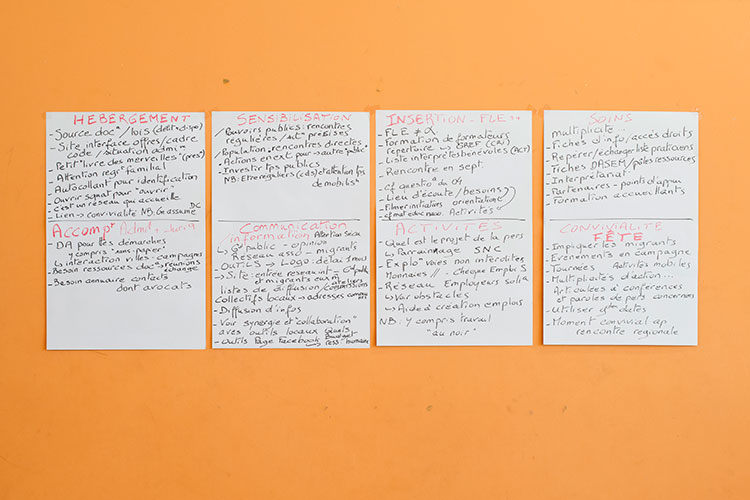 HEBERGEMENT
- Source doc° / lois (delit + dispo)
- Site interface offres/cadre
code / situation admin
- Petit "livre des merveilles" (pres°)
- Attention regt familial
- Autocollant pour identification
- Ouvrir squat pour "ouvrir"
- c'est un réseau qui accueille
- Lien → convivialité NB: Ge assume DC
Accompt Admit.
- DA pour les démarches
y compris "sans papier"
↳ interaction villes - campagnes
- Besoin ressources doc → réunions
échange
- Besoin annuaire contacts
dont avocats
SENSIBILISATION
- Pouvoirs publics: rencontres
régulières / précises
- Population → rencontres directes
- Actions en ext pour → autre "public"
- Investir les publics
NB: Etre reguliers (cds) et attention fin
de mobilis°
Communication
information Attention Secu
↳ public - opinion
Réseau asso - migrants
- OUTILS → Logo: délai 1 mois
→ Site: entrée reseau int
et migrants ext ateliers
listes de diffusion / commissions
Collectifs locaux → adresses
- Diffusion d'infos
- Voir synergie et "collaboration"
avec outils locaux Quels
- Outils Page Facebook Budget
→ ress. humaine
INSERTION - FLE
- FLE ≠ α
- Formation de formateurs
repertoire EREF (CRI)
- Liste interprètes bénévoles
- Rencontre en sept.
- cf questio° du 04
- Lieu d'écoute / besoins?
- Filmer initiatives orientation?
Activités"
ACTIVITES
- Quel est le projet de la pers
↳ Parrainage SNC
- Explo voies non interdites
Monnaies // - Chèque Emploi S
- Réseau Employeurs solid
↳ Voir obstacles
↳ Aide à création emplois
NB: Y compris travail
"au noir"
SOINS
multiplicité...
- Fiches d'info / accès droits
- Repérer/échanger liste praticiens
- Fiches PASEM / pôles ressources
- Interprétariat
- Partenaires - points d'appui
- Formation accueillants
CONVIVIALITE
FÊTE
- Impliquer les migrants
- Evènements en campagne
- Tournées Activités mobiles
- Multiplicités d'action...
Articulées à conférences
et paroles de pers concernées
- Utiliser dates
- Moment convivial ap
rencontre regionale